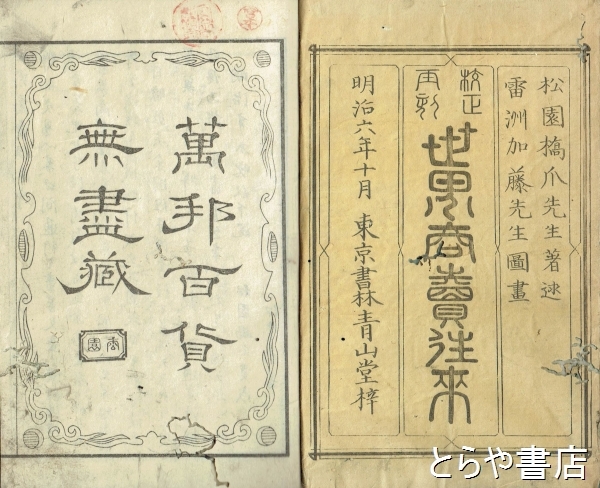 松園橋爪先生著述
雷洲加藤先生圖畫
校正
再刻
世界商賣往来
明治六年十月 東京書林青山堂梓
萬邦百貨
無盡藏
とらや書店